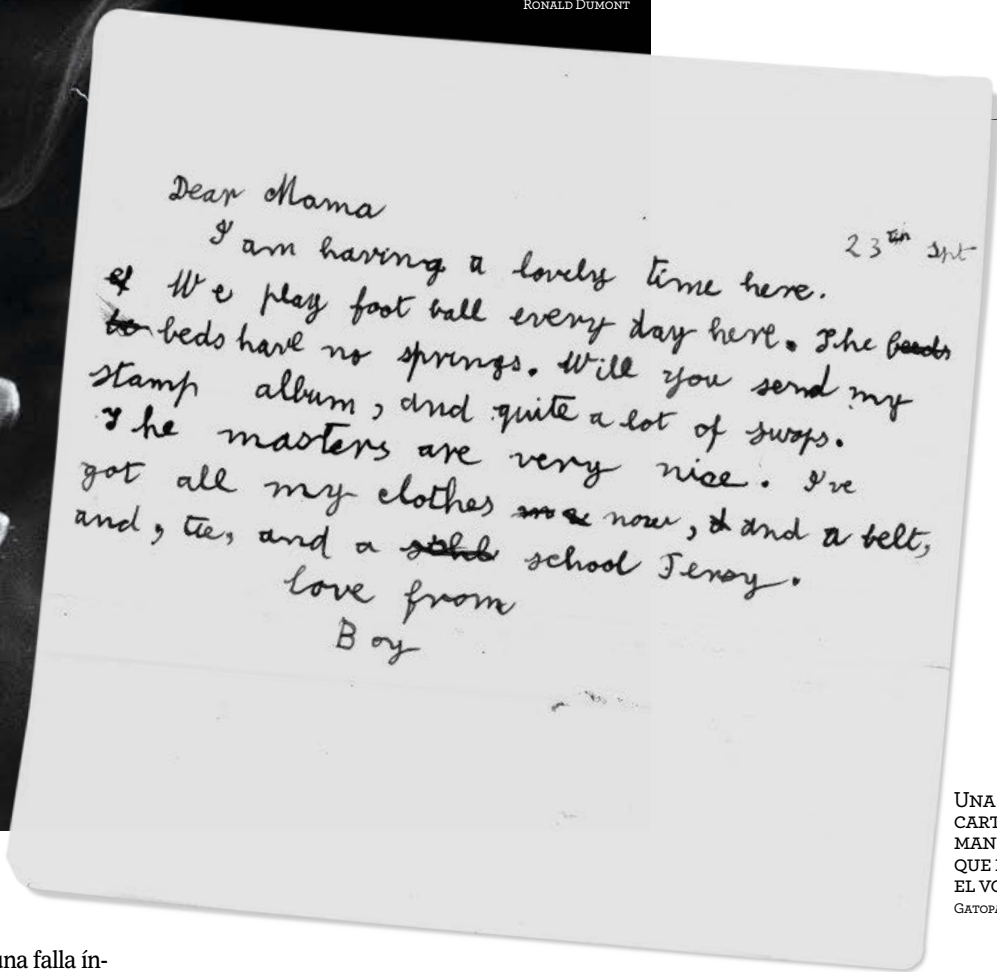 RONALD DUMONT
Dear Mama
23th Spt
I am having a lovely time here.
We play foot ball every day here. The beeds
beds have no springs. Will you send my
stamp album, and quite a lot of swops.
The masters are very nice. I've
got all my clothes now, and a belt,
and, tie, and a school Jersy.
love from
Boy
UNA
CART
MAN
QUE
EL VO
GATOPA
una falla ín-